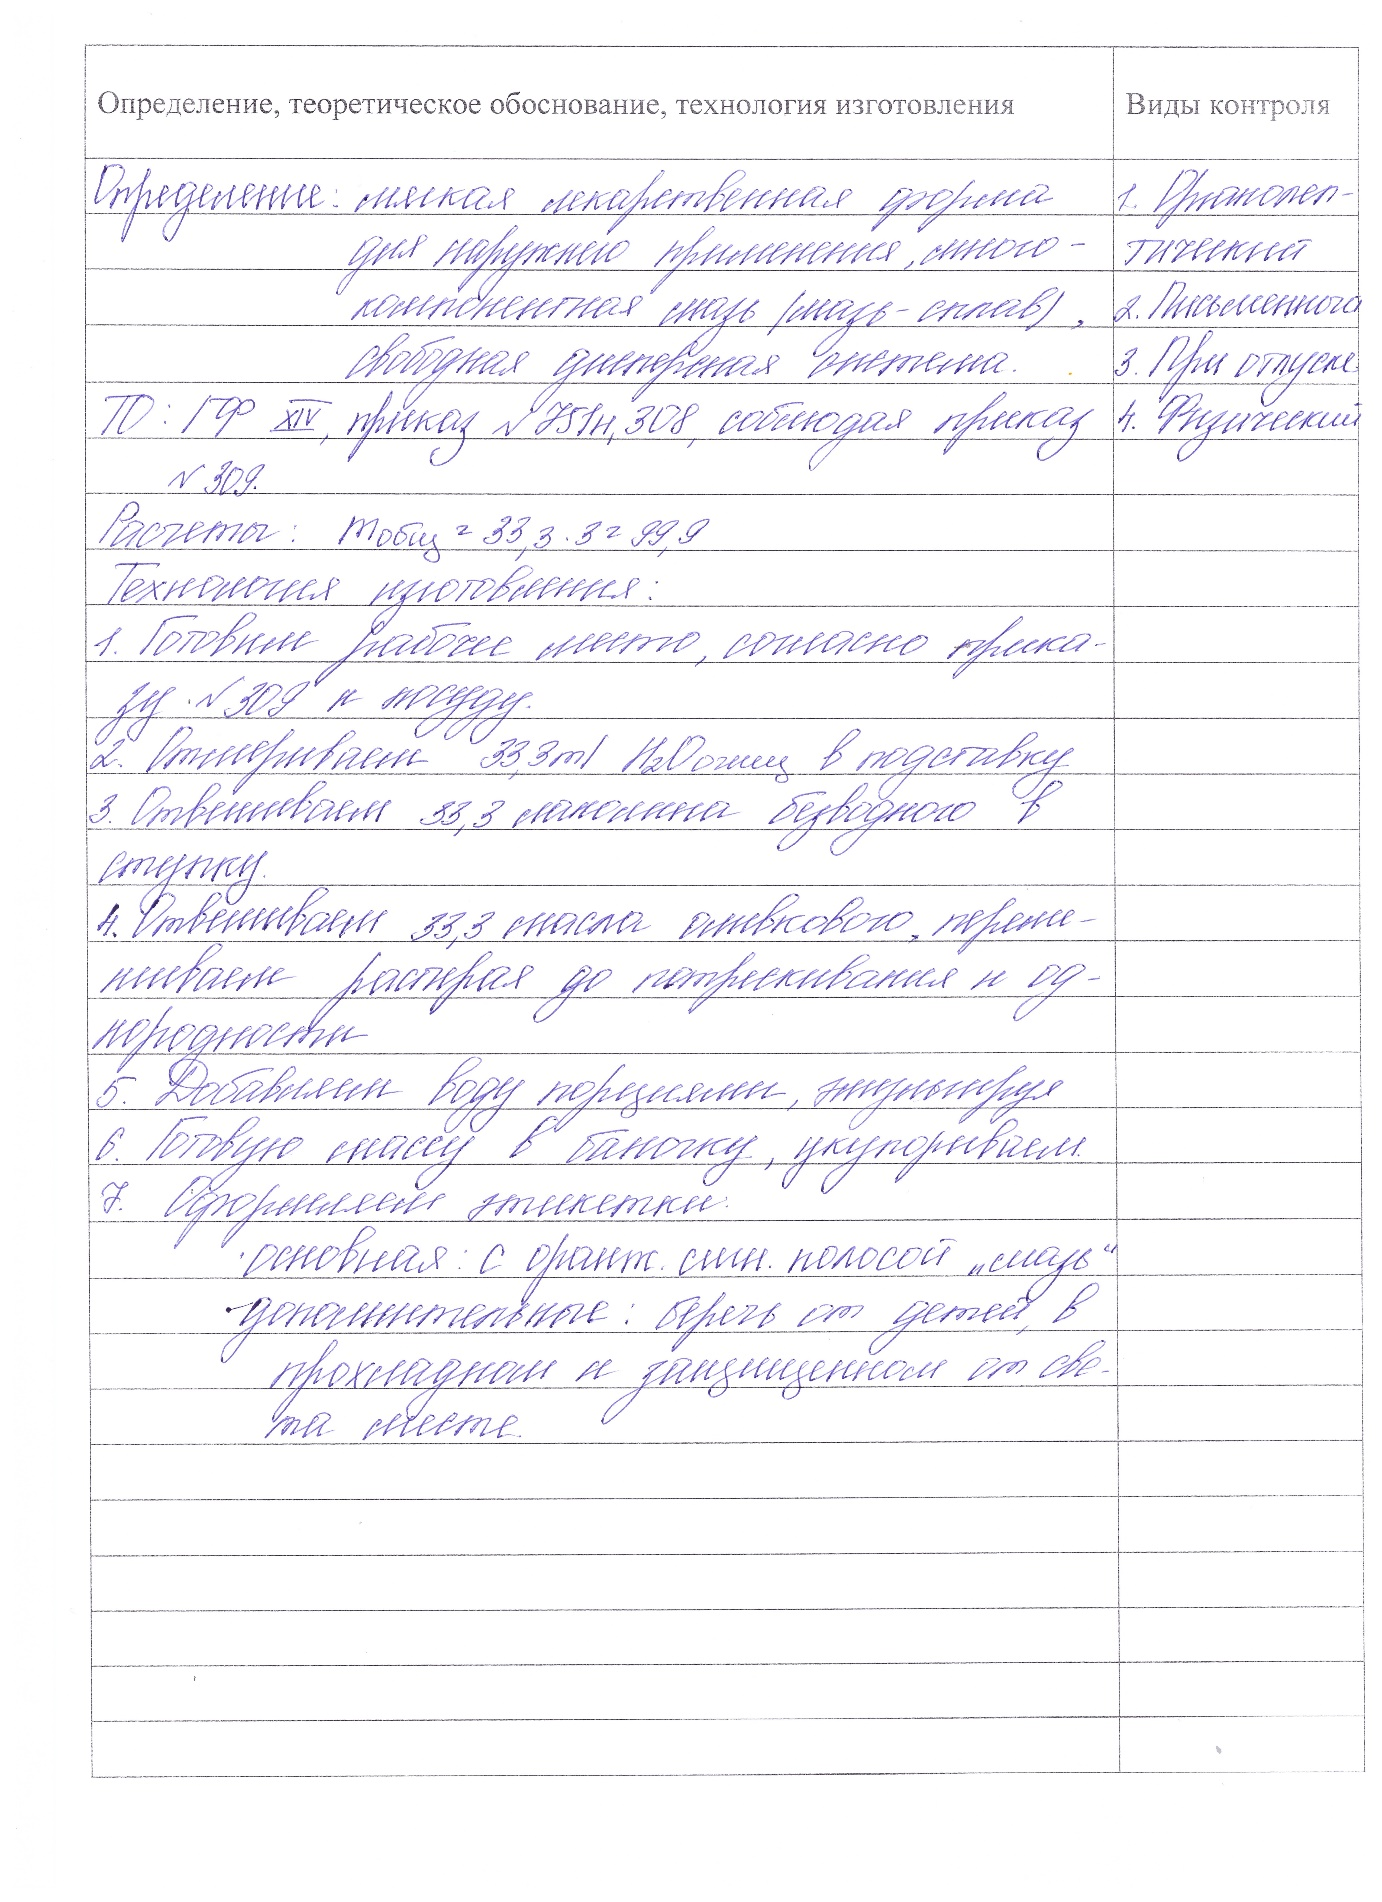 Определение, теоретическое обоснование, технология изготовления
Виды контроля
Определение: мягкая лекарственная форма
для наружнего применения, много-
компонентная мазь (мазь-сплав),
свободная дисперсная система.
ТО: ГФ XIV, приказ №751н, 308, соблюдая приказ
№309.
Расчеты: mобщ = 33,3 · 3 = 99,9
Технология изготовления:
1. Готовим рабочее место, согласно прика-
зу №309 и посуду.
2. Отмериваем 33,3ml H2Oочищ в подставку
3. Отвешиваем 33,3 ланолина безводного в
ступку.
4. Отвешиваем 33,3 масла оливкового, переме-
шиваем растирая до потрескивания и од-
нородности
5. Добавляем воду порциями,
6. Готовую массу в баночку, укупориваем.
7. Оформляем этикетки:
· основная: с оранж. сигн. полосой „мазь“
- дополнительные: беречь от детей, в
прохладном и защищенном от све-
та месте.
1. Органолеп-
тический
2. Письменного
3. При отпуске
4. Физический